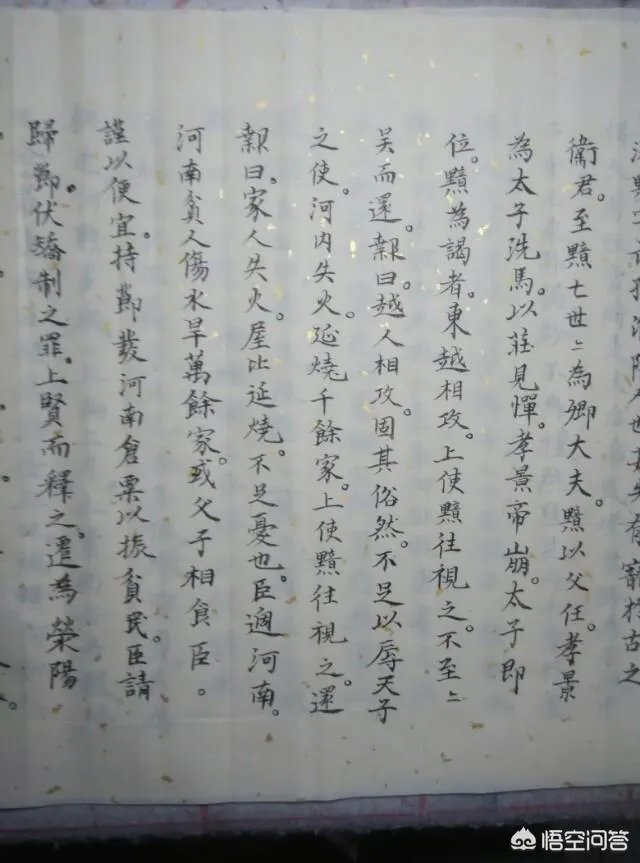 有寵於古之
衞君。至黯七世〻為卿大夫。黯以父任。孝景
為太子洗馬。以莊見憚。孝景帝崩。太子即
位。黯為謁者。東越相攻。上使黯往視之。不至〻
吴而還。報曰。越人相攻。固其俗然。不足以辱天子
之使。河内失火。延燒千餘家。上使黯往視之。還
報曰。家人失火。屋比延燒。不足憂也。臣過河南。
河南貧人傷水旱萬餘家。或父子相食臣。
謹以便宜。持節發河南倉粟以振貧民。臣請
歸節。伏矯制之罪。上賢而釋之。遷為榮陽
悟空问答